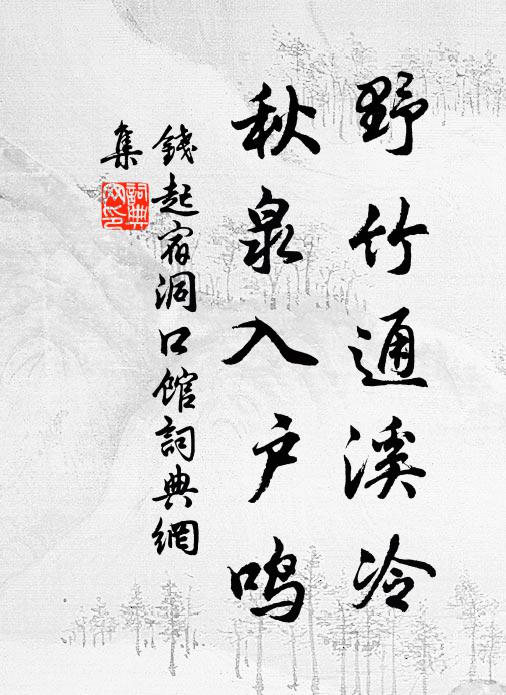 野竹通溪冷
秋泉入户鸣
錢起宿洞口馆詞典網
集
詞典網印